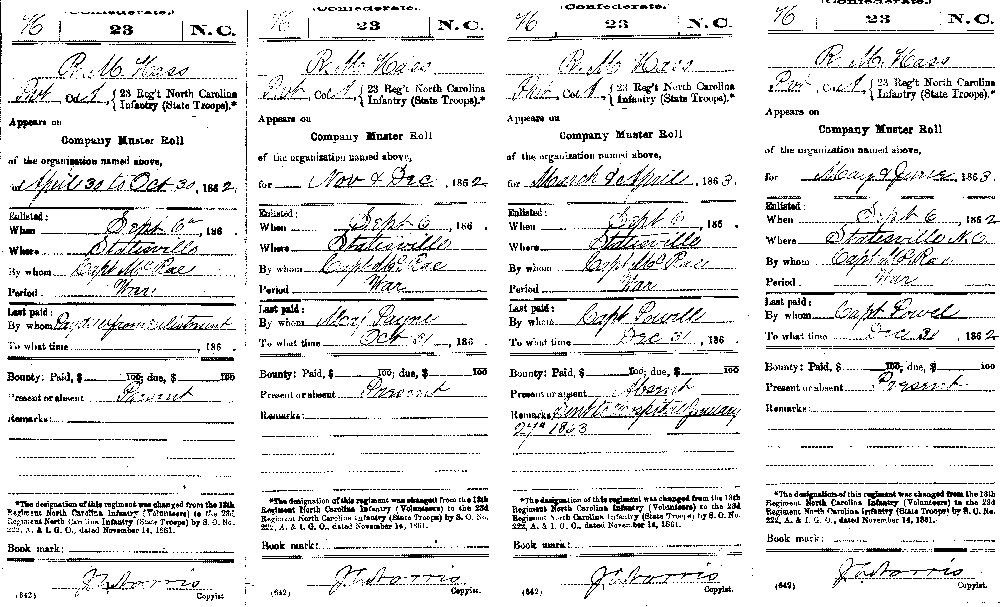 Confederate.
H 23 N.C.
R. M. Hass
Pvt Co. 23 Reg't North Carolina
Infantry (State Troops).*
Appears on
Company Muster Roll
of the organization named above,
April 30 to Oct 30, 1862.
Enlisted:
When Sept 6th, 186 .
Where Statesville
By whom Capt McRae
Period War
Last paid:
By whom Pay due from enlistment
To what time , 186 .
Bounty: Paid, $ 100; due, $ 100
Present or absent Present
Remarks:
*The designation of this regiment was changed from the 13th
Regiment North Carolina Infantry (Volunteers) to the 23d
Regiment North Carolina Infantry (State Troops) by S. O. No.
222, A. & I. G. O., dated November 14, 1861.
Book mark:
(642) Copyist.
Confederate.
H 23 N.C.
R. M. Hass
Pvt Co. 23 Reg't North Carolina
Infantry (State Troops).*
Appears on
Company Muster Roll
of the organization named above,
for Nov & Dec , 1862.
Enlisted:
When Sept 6 , 186 .
Where Statesville
By whom Capt McRae
Period War
Last paid:
By whom Maj Payne
To what time Oct 31 , 186 .
Bounty: Paid, $ 100; due, $ 100
Present or absent Present
Remarks:
*The designation of this regiment was changed from the 13th
Regiment North Carolina Infantry (Volunteers) to the 23d
Regiment North Carolina Infantry (State Troops) by S. O. No.
222, A. & I. G. O., dated November 14, 1861.
Book mark:
(642) Copyist.
Confederate.
H 23 N.C.
R. M. Hass
Pvt Co. 23 Reg't North Carolina
Infantry (State Troops).*
Appears on
Company Muster Roll
of the organization named above,
for March & April , 1863.
Enlisted:
When Sept 6 , 186 .
Where Statesville
By whom Capt McRae
Period War
Last paid:
By whom Capt Powell
To what time Dec 31 , 186 .
Bounty: Paid, $ 100; due, $ 100
Present or absent Absent
Remarks: Sent to hospital January
27th 1863
*The designation of this regiment was changed from the 13th
Regiment North Carolina Infantry (Volunteers) to the 23d
Regiment North Carolina Infantry (State Troops) by S. O. No.
222, A. & I. G. O., dated November 14, 1861.
Book mark:
(642) Copyist.
Confederate.
H 23 N.C.
R. M. Hass
Pvt Co. 23 Reg't North Carolina
Infantry (State Troops).*
Appears on
Company Muster Roll
of the organization named above,
for May & June , 1863.
Enlisted:
When Sept 6 , 1862
Where Statesville N.C.
By whom Capt McRae
Period War
Last paid:
By whom Capt Powel
To what time Dec 31 , 1862
Bounty: Paid, $ 100; due, $ 100
Present or absent Present
Remarks:
*The designation of this regiment was changed from the 13th
Regiment North Carolina Infantry (Volunteers) to the 23d
Regiment North Carolina Infantry (State Troops) by S. O. No.
222, A. & I. G. O., dated November 14, 1861.
Book mark:
(642) Copyist.